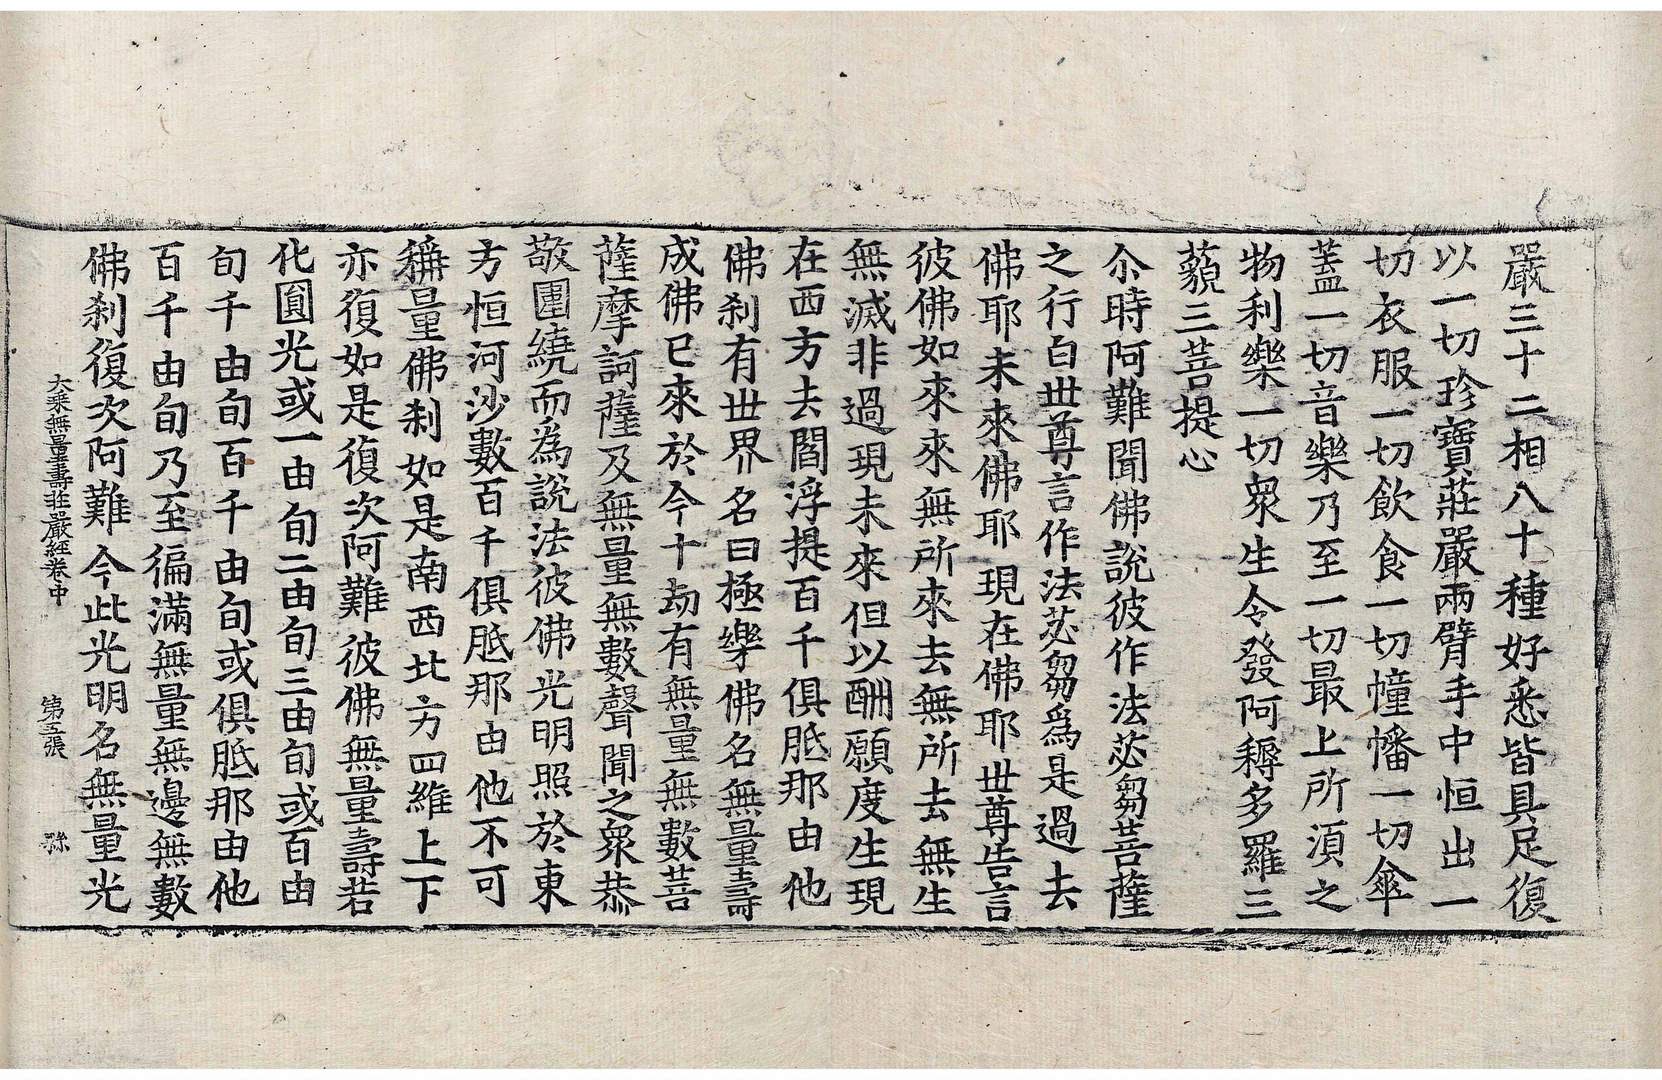 嚴三十二相八十種好悉皆具足復
以一切珍寶莊嚴兩臂手中恒出一
切衣服一切飲食一切幢幡一切傘
蓋一切音樂乃至一切最上所湏之
物利樂一切衆生令發阿耨多羅三
藐三菩提心
尒時阿難聞佛說彼作法苾芻菩薩
之行白世尊言作法苾芻爲是過去
佛耶未來佛耶現在佛耶世尊告言
彼佛如來來無所來去無所去無生
無滅非過現未來但以酬願度生現
在西方去閻浮提百千俱胝那由他
佛刹有世界名曰極樂佛名無量壽
成佛已來於今十劫有無量無數菩
薩摩訶薩及無量無數聲聞之衆恭
敬圍繞而爲說法彼佛光明照於東
方恒河沙數百千俱胝那由他不可
稱量佛刹如是南西北方四維上下
亦復如是復次阿難彼佛無量壽若
化圓光或一由旬二由旬三由旬或百由
旬千由旬百千由旬或俱胝那由他
百千由旬乃至徧滿無量無邊無數
佛刹復次阿難今此光明名無量光
大乘無量壽莊嚴經卷中 第五張